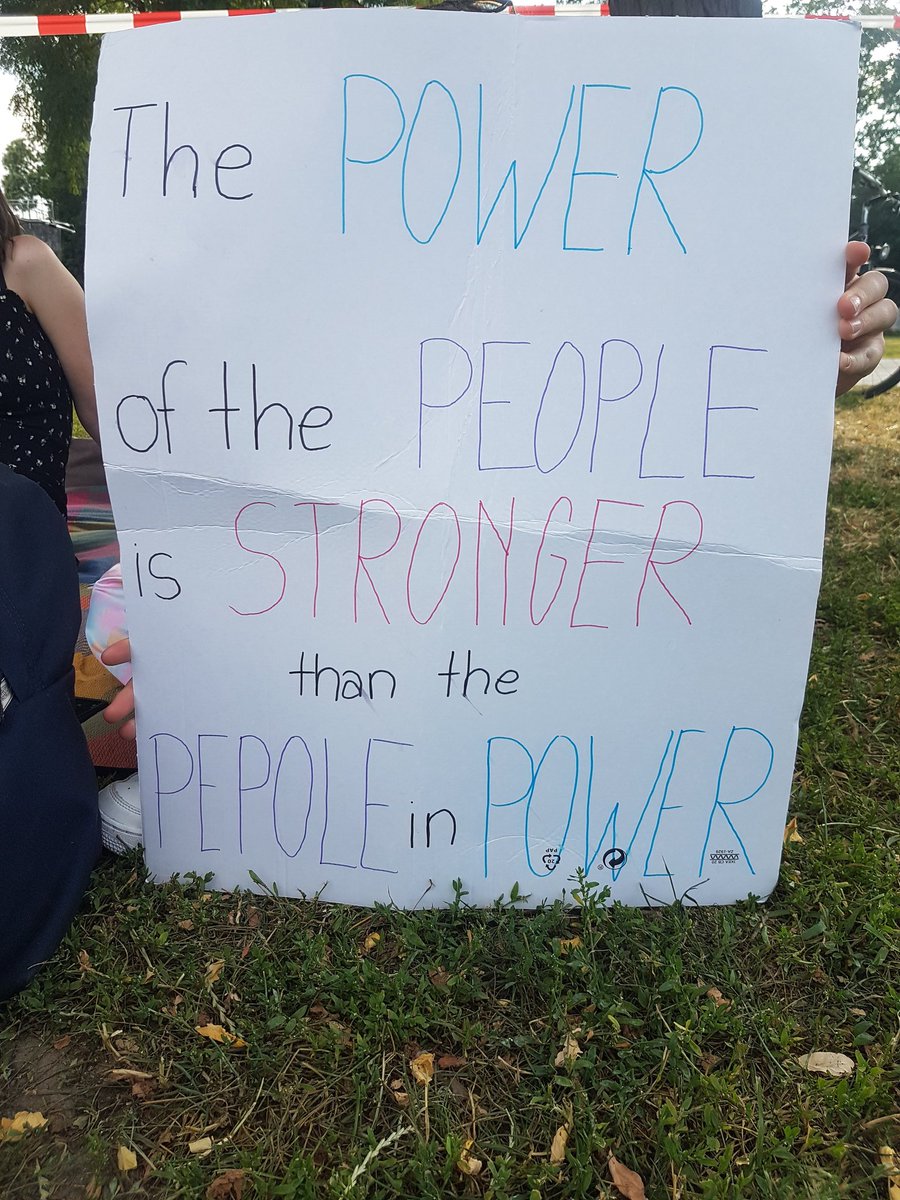 The POWER
of the PEOPLE
is STRONGER
than the
PEPOLE in POWER
20
PAP